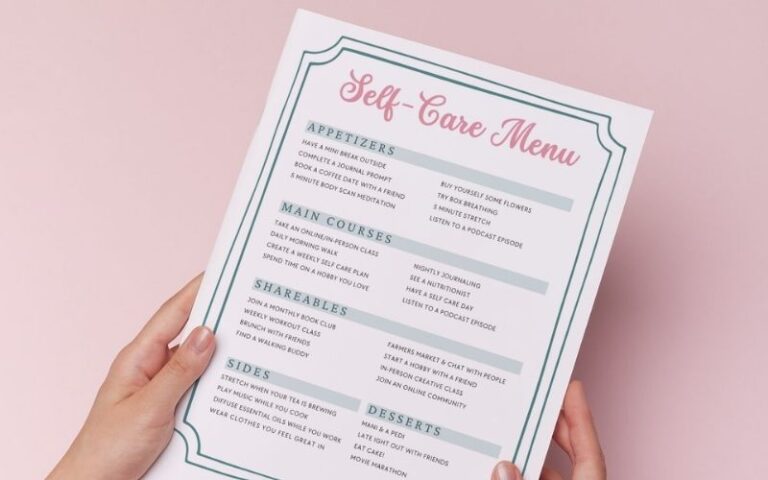 Self-Care Menu
APPETIZERS
HAVE A MINI BREAK OUTSIDE
COMPLETE A JOURNAL PROMPT
BOOK A COFFEE DATE WITH A FRIEND
5 MINUTE BODY SCAN MEDITATION
BUY YOURSELF SOME FLOWERS
TRY BOX BREATHING
5 MINUTE STRETCH
LISTEN TO A PODCAST EPISODE
MAIN COURSES
TAKE AN ONLINE/IN-PERSON CLASS
DAILY MORNING WALK
CREATE A WEEKLY SELF CARE PLAN
SPEND TIME ON A HOBBY YOU LOVE
NIGHTLY JOURNALING
SEE A NUTRITIONIST
HAVE A SELF CARE DAY
LISTEN TO A PODCAST EPISODE
SHAREABLES
JOIN A MONTHLY BOOK CLUB
WEEKLY WORKOUT CLASS
BRUNCH WITH FRIENDS
FIND A WALKING BUDDY
FARMERS MARKET & CHAT WITH PEOPLE
START A HOBBY WITH A FRIEND
IN-PERSON CREATIVE CLASS
JOIN AN ONLINE COMMUNITY
SIDES
STRETCH WHEN YOUR TEA IS BREWING
PLAY MUSIC WHILE YOU COOK
DIFFUSE ESSENTIAL OILS WHILE YOU WORK
WEAR CLOTHES YOU FEEL GREAT IN
DESSERTS
MANI & A PEDI
LATE IGHT OUT WITH FRIENDS
EAT CAKE!
MOVIE MARATHON